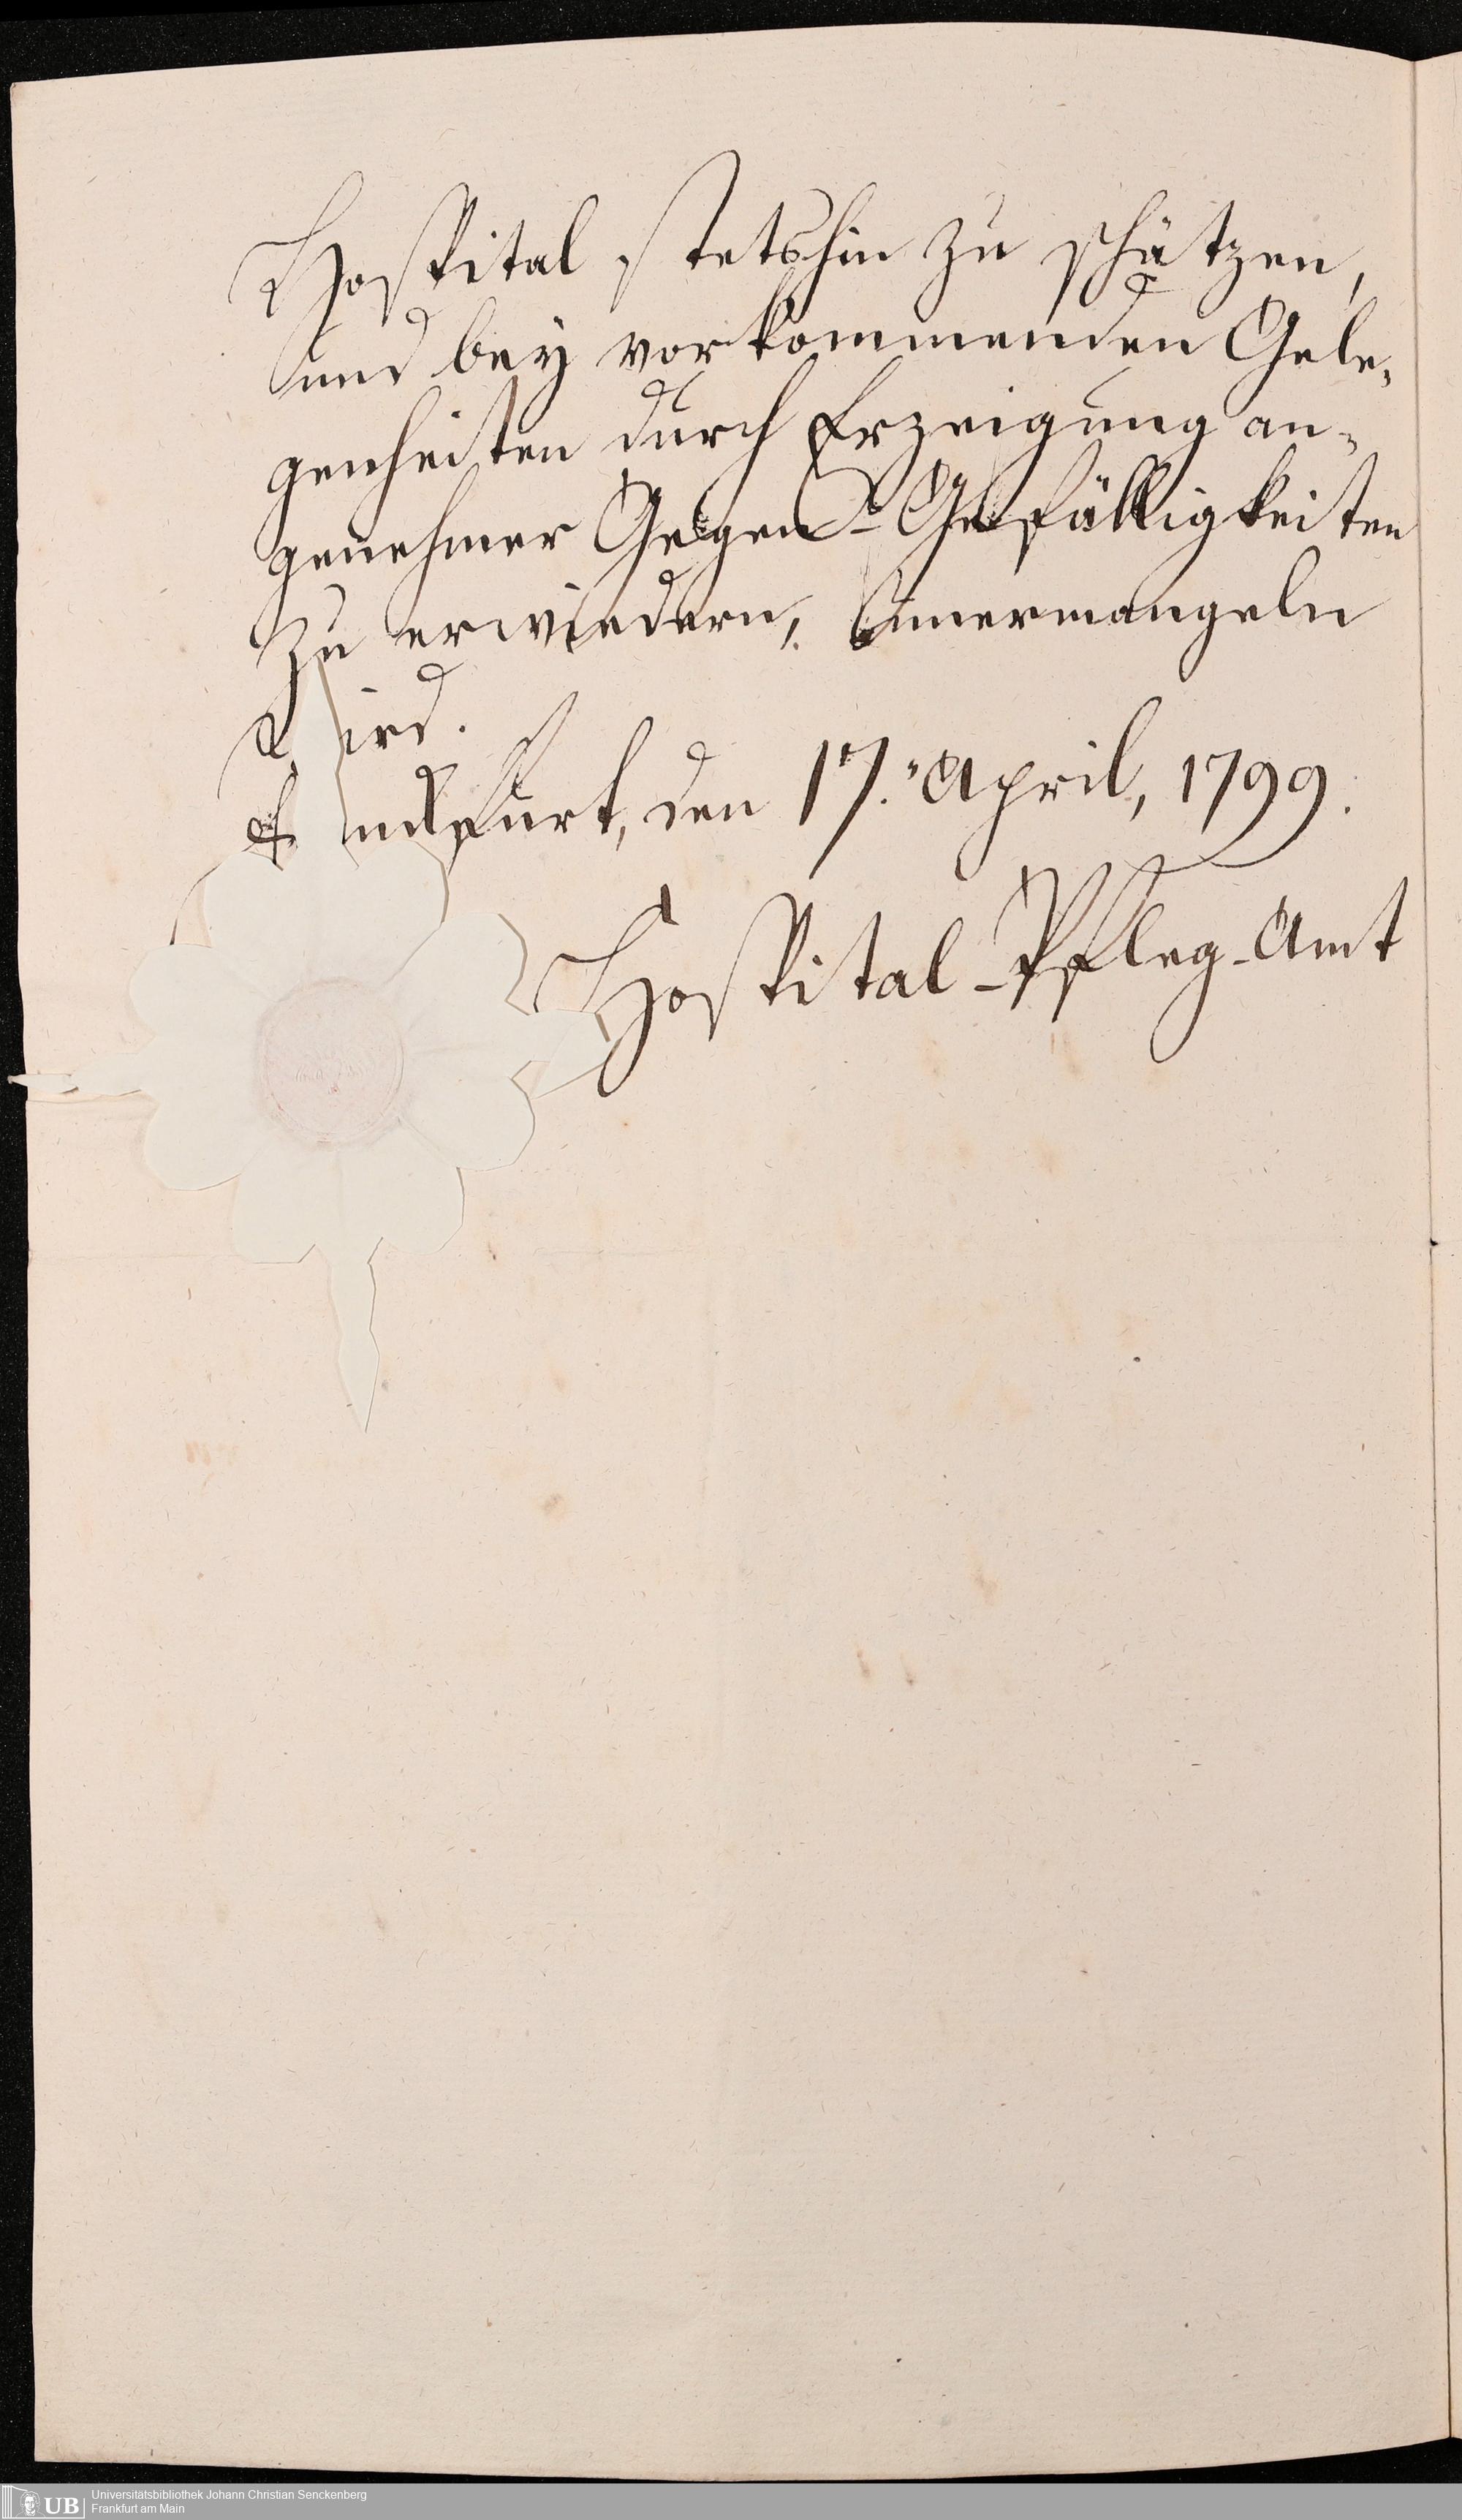 Hospital stetshin zu schätzen,
und bey vorkommenden Gele-
genheiten durch Erzeigung an-
genehmer Gegen-Gefälligkeiten
zu erwiedern, unermangeln
wird.
Franckfurt, den 17. April, 1799.
Hospital-Pfleg-Amt
UB Universitätsbibliothek Johann Christian Senckenberg
Frankfurt am Main